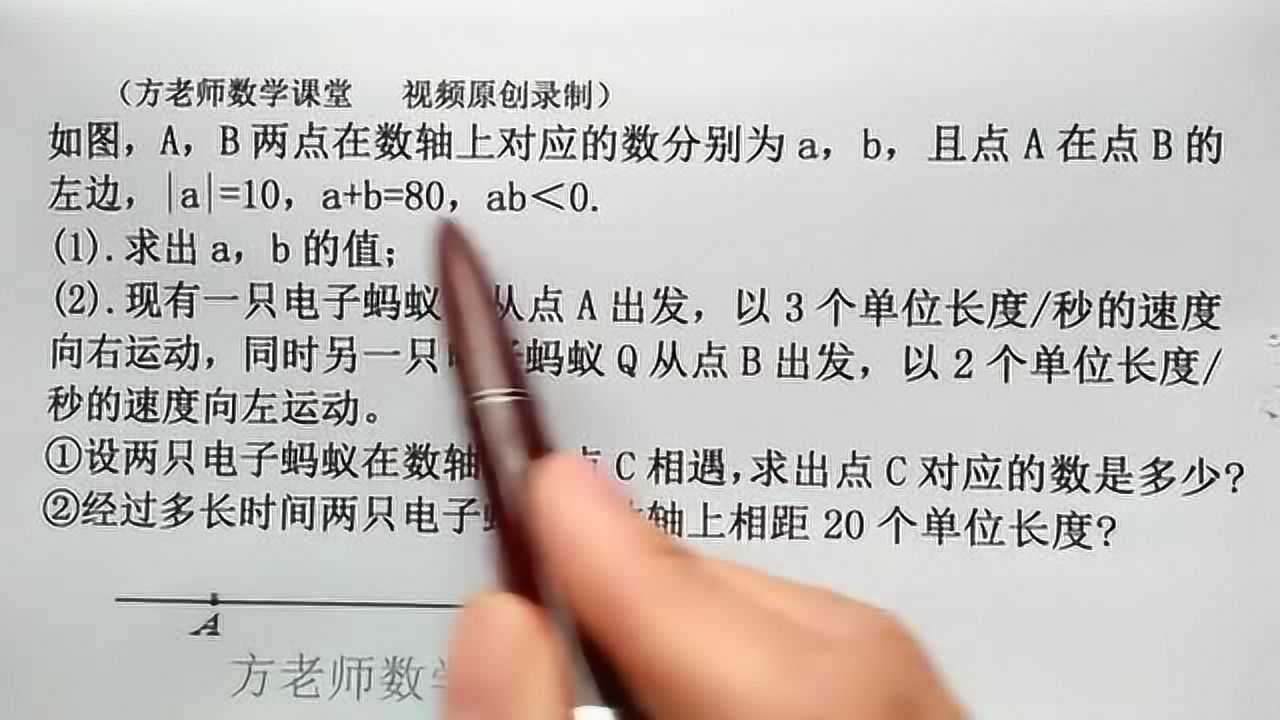 （方老师数学课堂 视频原创录制）
如图，A，B两点在数轴上对应的数分别为a，b，且点A在点B的
左边，|a|=10，a+b=80，ab＜0.
(1).求出a，b的值；
(2).现有一只电子蚂蚁 从点A出发，以3个单位长度/秒的速度
向右运动，同时另一只 蚂蚁Q从点B出发，以2个单位长度/
秒的速度向左运动。
①设两只电子蚂蚁在数轴 点C相遇,求出点C对应的数是多少?
②经过多长时间两只电子 轴上相距20个单位长度?
A
方老师数学